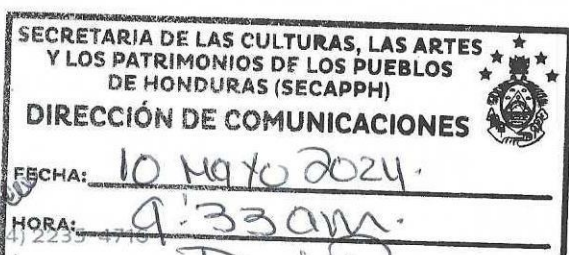 SECRETARIA DE LAS CULTURAS, LAS ARTES
Y LOS PATRIMONIOS DE LOS PUEBLOS
DE HONDURAS (SECAPPH)
DIRECCIÓN DE COMUNICACIONES
FECHA: 10 Mayo 2024.
HORA: 9:33 am.
4) 2235-4716